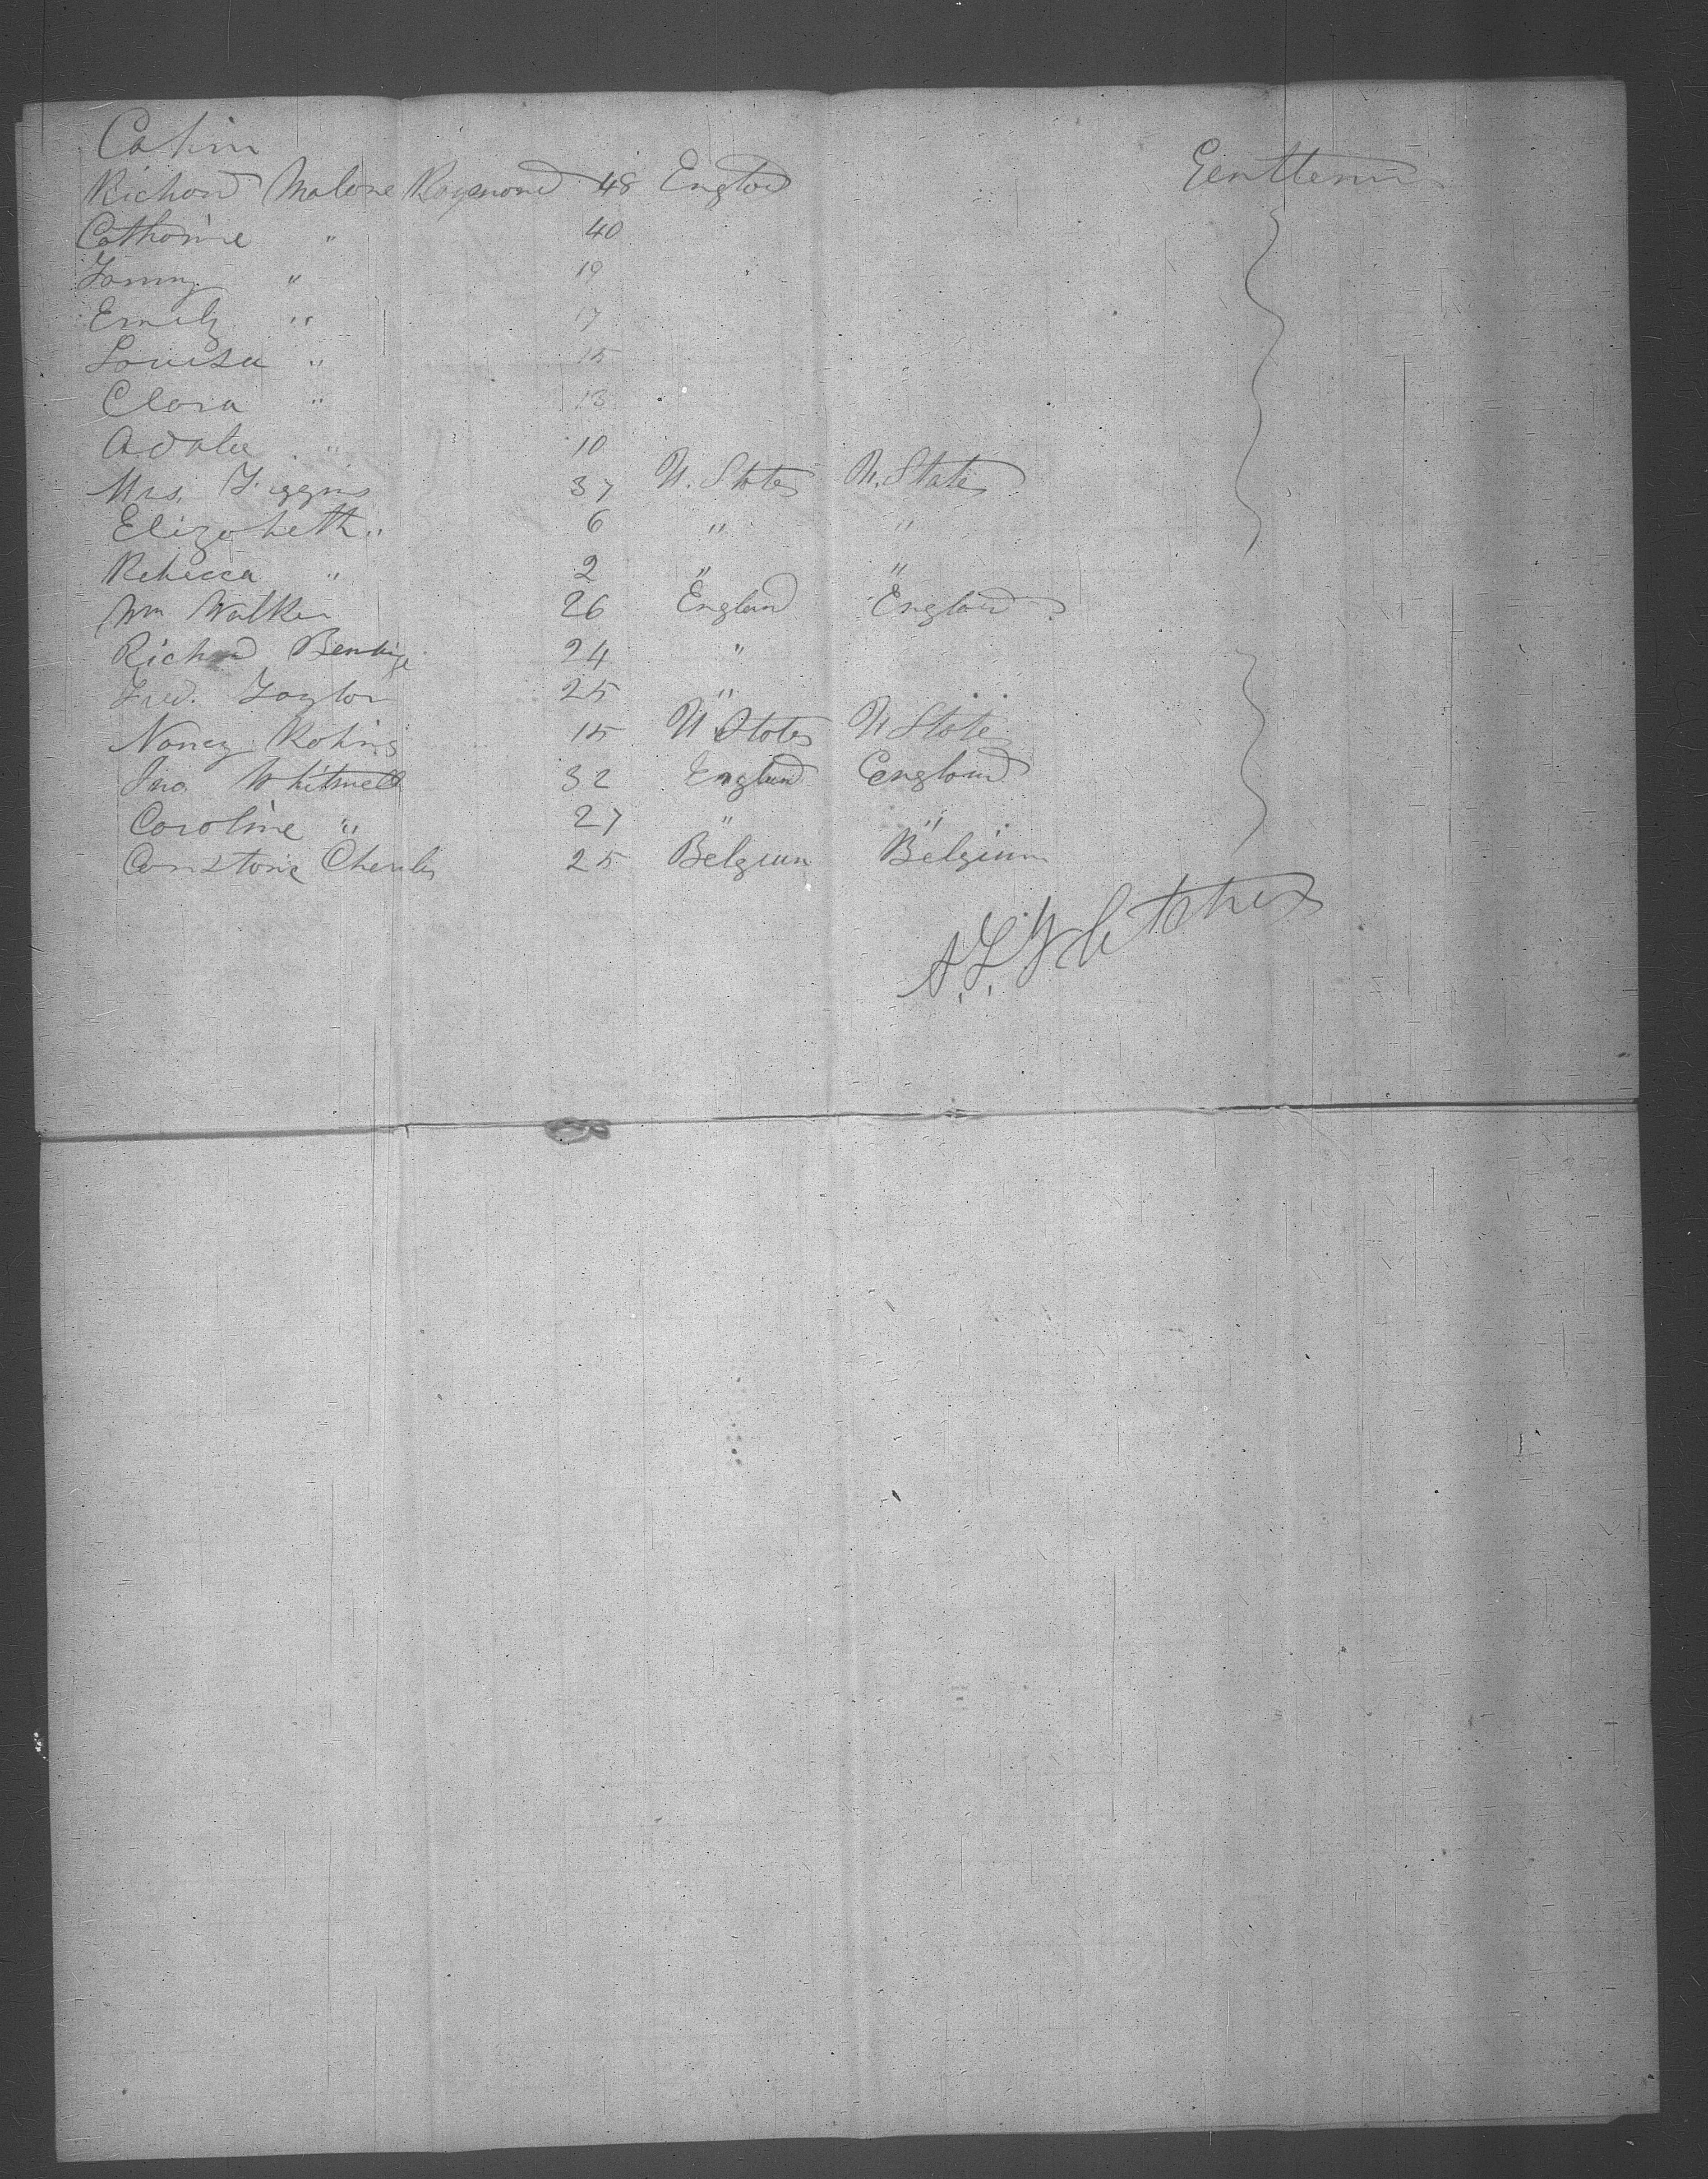 Cabin
Richard Malone Raymond 48 England Gentleman
Catharine " 40
Fanny " 19
Emily " 17
Louisa " 15
Clara " 13
" 10
Mrs. Figgins 37 U. States U. States
Elizabeth " 6 " "
Rebecca " 2 " "
Wm Walker 26 England England
Richard 24 "
Fred. Taylor 25 "
Nancy Robins 15 U States U State
Jno. Whitwell 32 England England
Caroline " 27 " "
Charles 25 Belgium Belgium